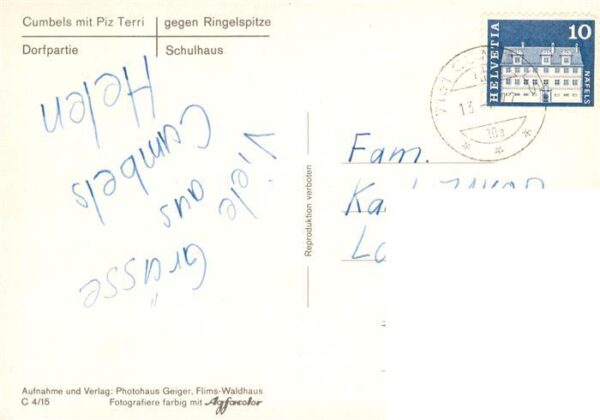 Cumbels mit Piz Terri
gegen Ringelspitze
Dorfpartie
Schulhaus
HELVETIA
10
NÄFELS
13
Viele Grüsse
aus
Cumbels
Helen
Reproduktion verboten
Fam.
Aufnahme und Verlag: Photohaus Geiger, Flims-Waldhaus
C 4/15
Fotografiere farbig mit Agfacolor